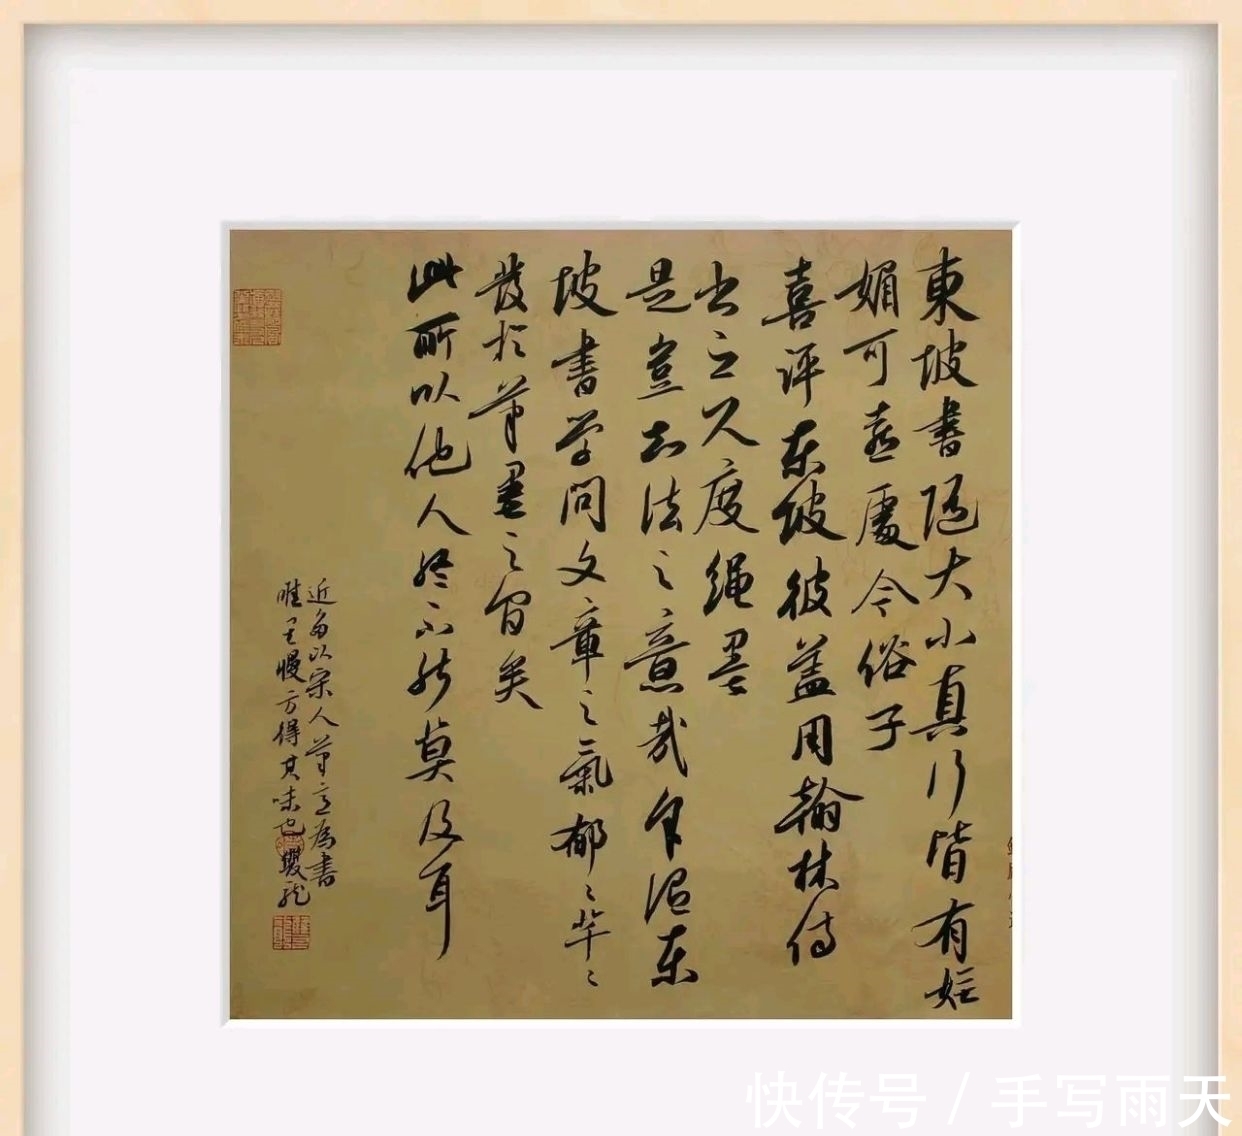 東坡書随大小真行皆有妩
媚可憙處今俗子
喜评东坡彼盖用翰林侍
书之尺度绳墨
是豈知法之意哉余谓东
坡書学问文章之氣郁々芊々
发於筆墨之间矣
此所以他人终不能莫及耳
近多以宋人筆意為書
唯慢方得其味也
快传号 / 手写雨天